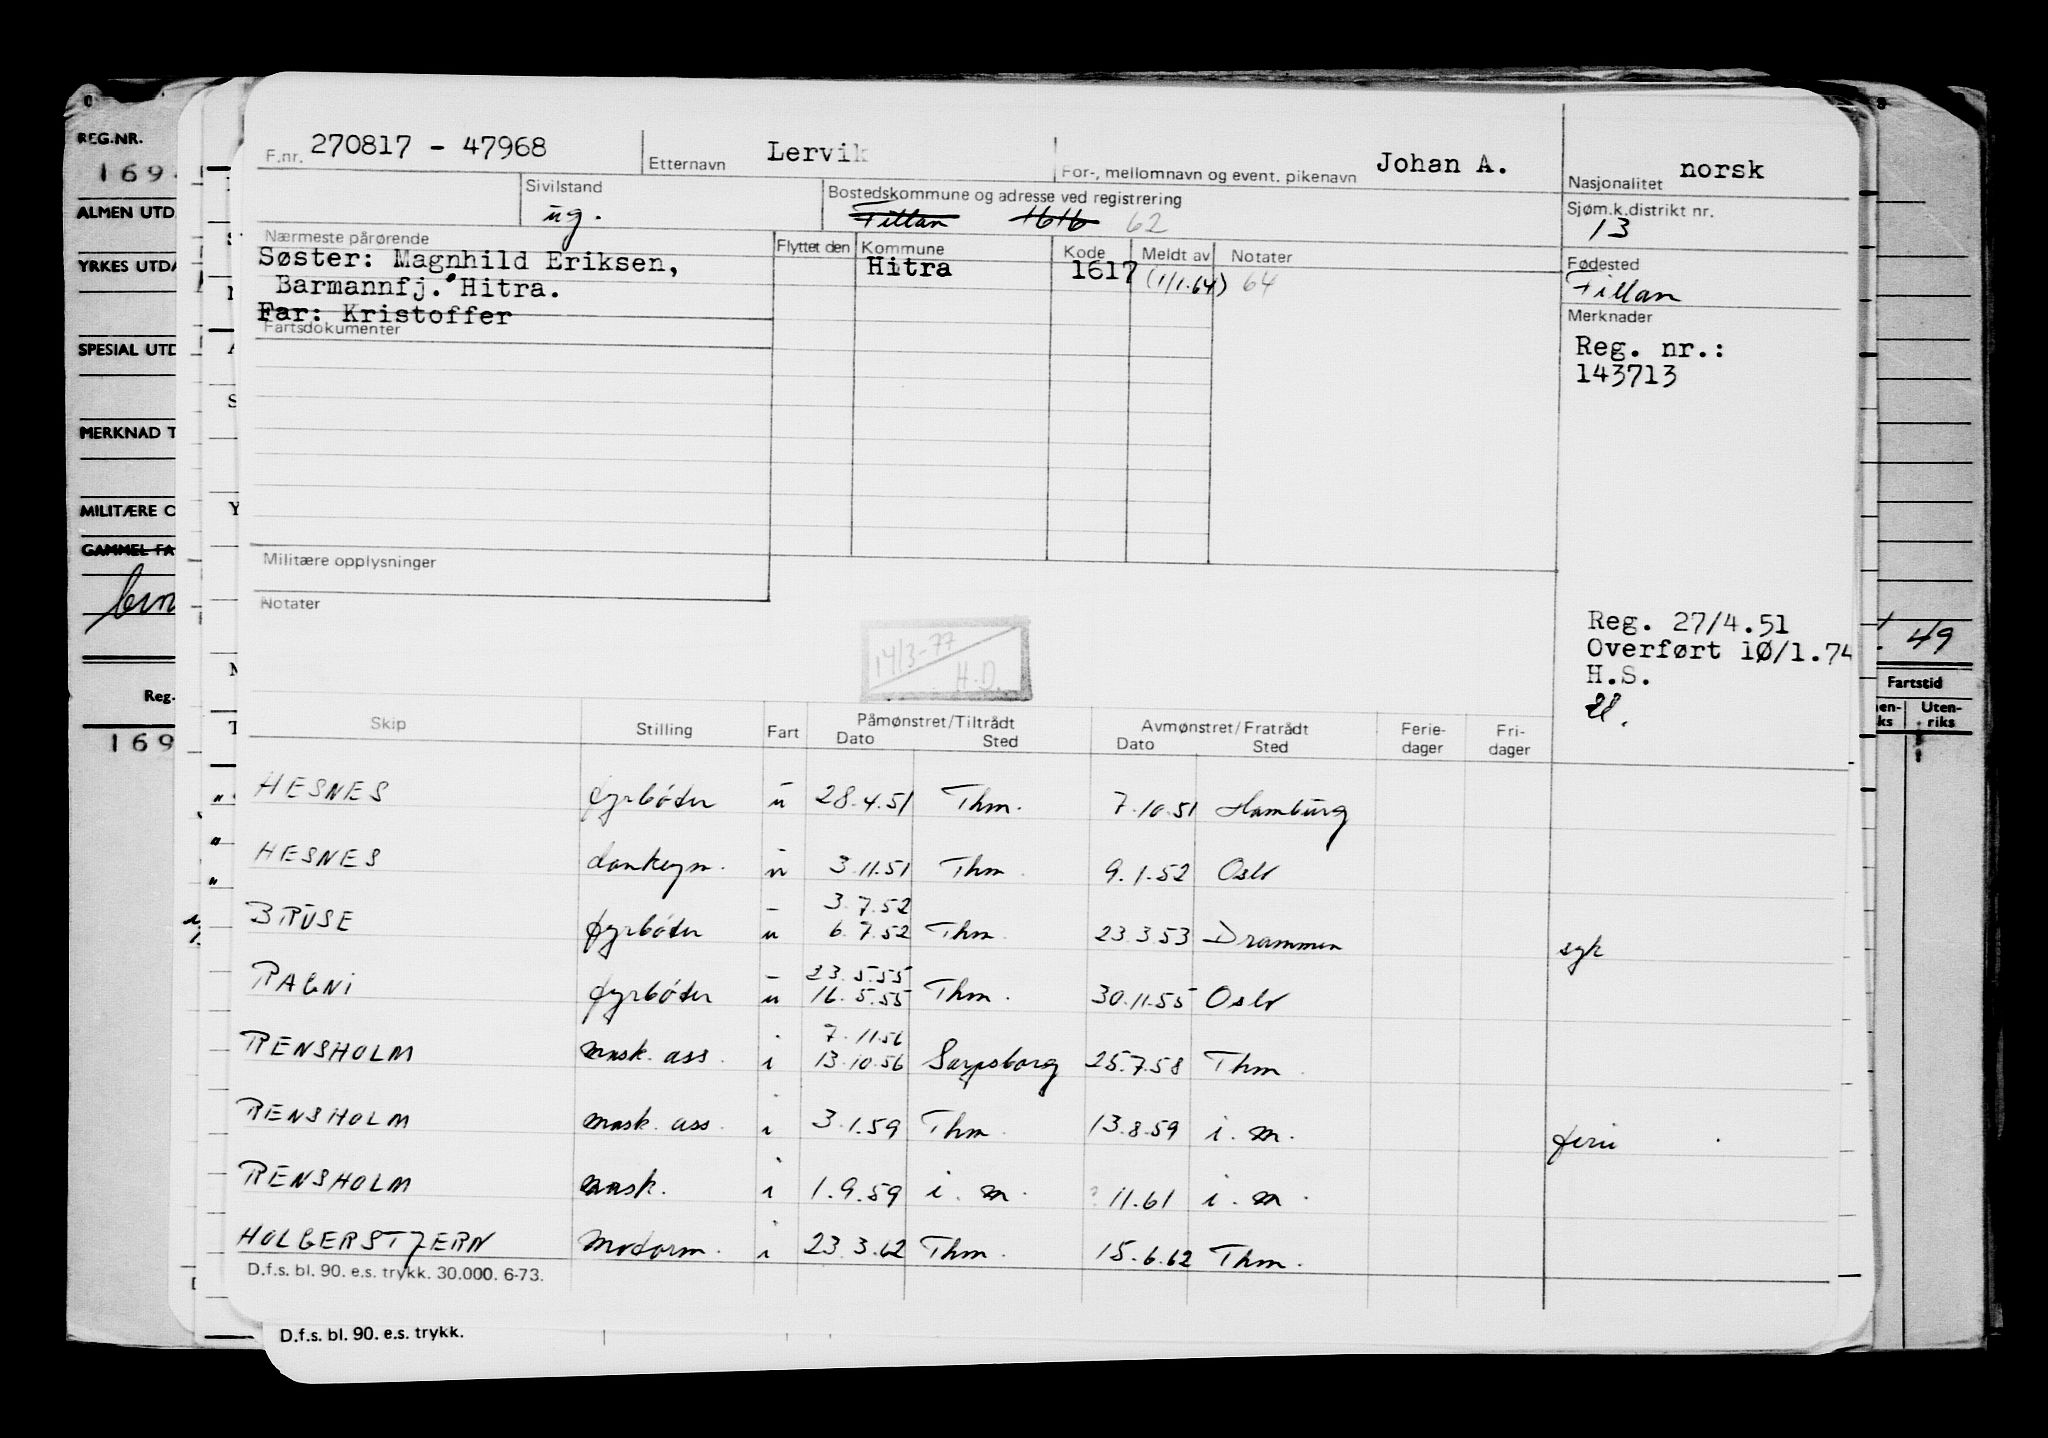 REG.NR.
169
ALMEN UTD
YRKES UTDA
SPESIAL UTD
MERKNAD T
MILITÆRE O
GAMMEL FA
Reg.
169
F.nr. 270817 - 47968 Etternavn Lervik For-, mellomnavn og event. pikenavn Johan A. Nasjonalitet norsk
Sivilstand ug.
Bostedskommune og adresse ved registrering
Fillan 1616 62
Sjøm.k.distrikt nr.
13
Nærmeste pårørende
Søster: Magnhild Eriksen,
Barmannfj. Hitra.
Far: Kristoffer
Flyttet den Kommune Kode Meldt av Notater
Hitra 1617 (1/1.64) 64
Fødested
Fillan
Fartsdokumenter
Merknader
Reg. nr.:
143713
Militære opplysninger
Notater
14/3-77
H.D.
Reg. 27/4.51
Overført 10/1.74
H.S.
49
Fartstid
Uten-
riks
Skip Stilling Fart Påmønstret/Tiltrådt Avmønstret/Fratrådt Ferie- Fri-
Dato Sted Dato Sted dager dager
HESNES fyrbøter u 28.4.51 Thm. 7.10.51 Hamburg
HESNES donkeym. u 3.11.51 Thm. 9.1.52 Oslo
- 3.7.52
BRUSE fyrbøter u 6.7.52 Thm. 23.3.53 Drammen syk
- 23.5.55
RAGNI fyrbøter u 16.5.55 Thm. 30.11.55 Oslo
7.11.56
RENSHOLM mask. ass. i 13.10.56 Sarpsborg 25.7.58 Thm.
RENSHOLM mask. ass. i 3.1.59 Thm. 13.8.59 i.m. ferie
RENSHOLM mask. i 1.9.59 i.m. ? 11.61 i.m.
HOLGERSTJERN motorm. i 23.3.62 Thm. 15.6.62 Thm.
D.f.s. bl. 90. e.s. trykk. 30.000. 6-73.
D.f.s. bl. 90. e.s. trykk.